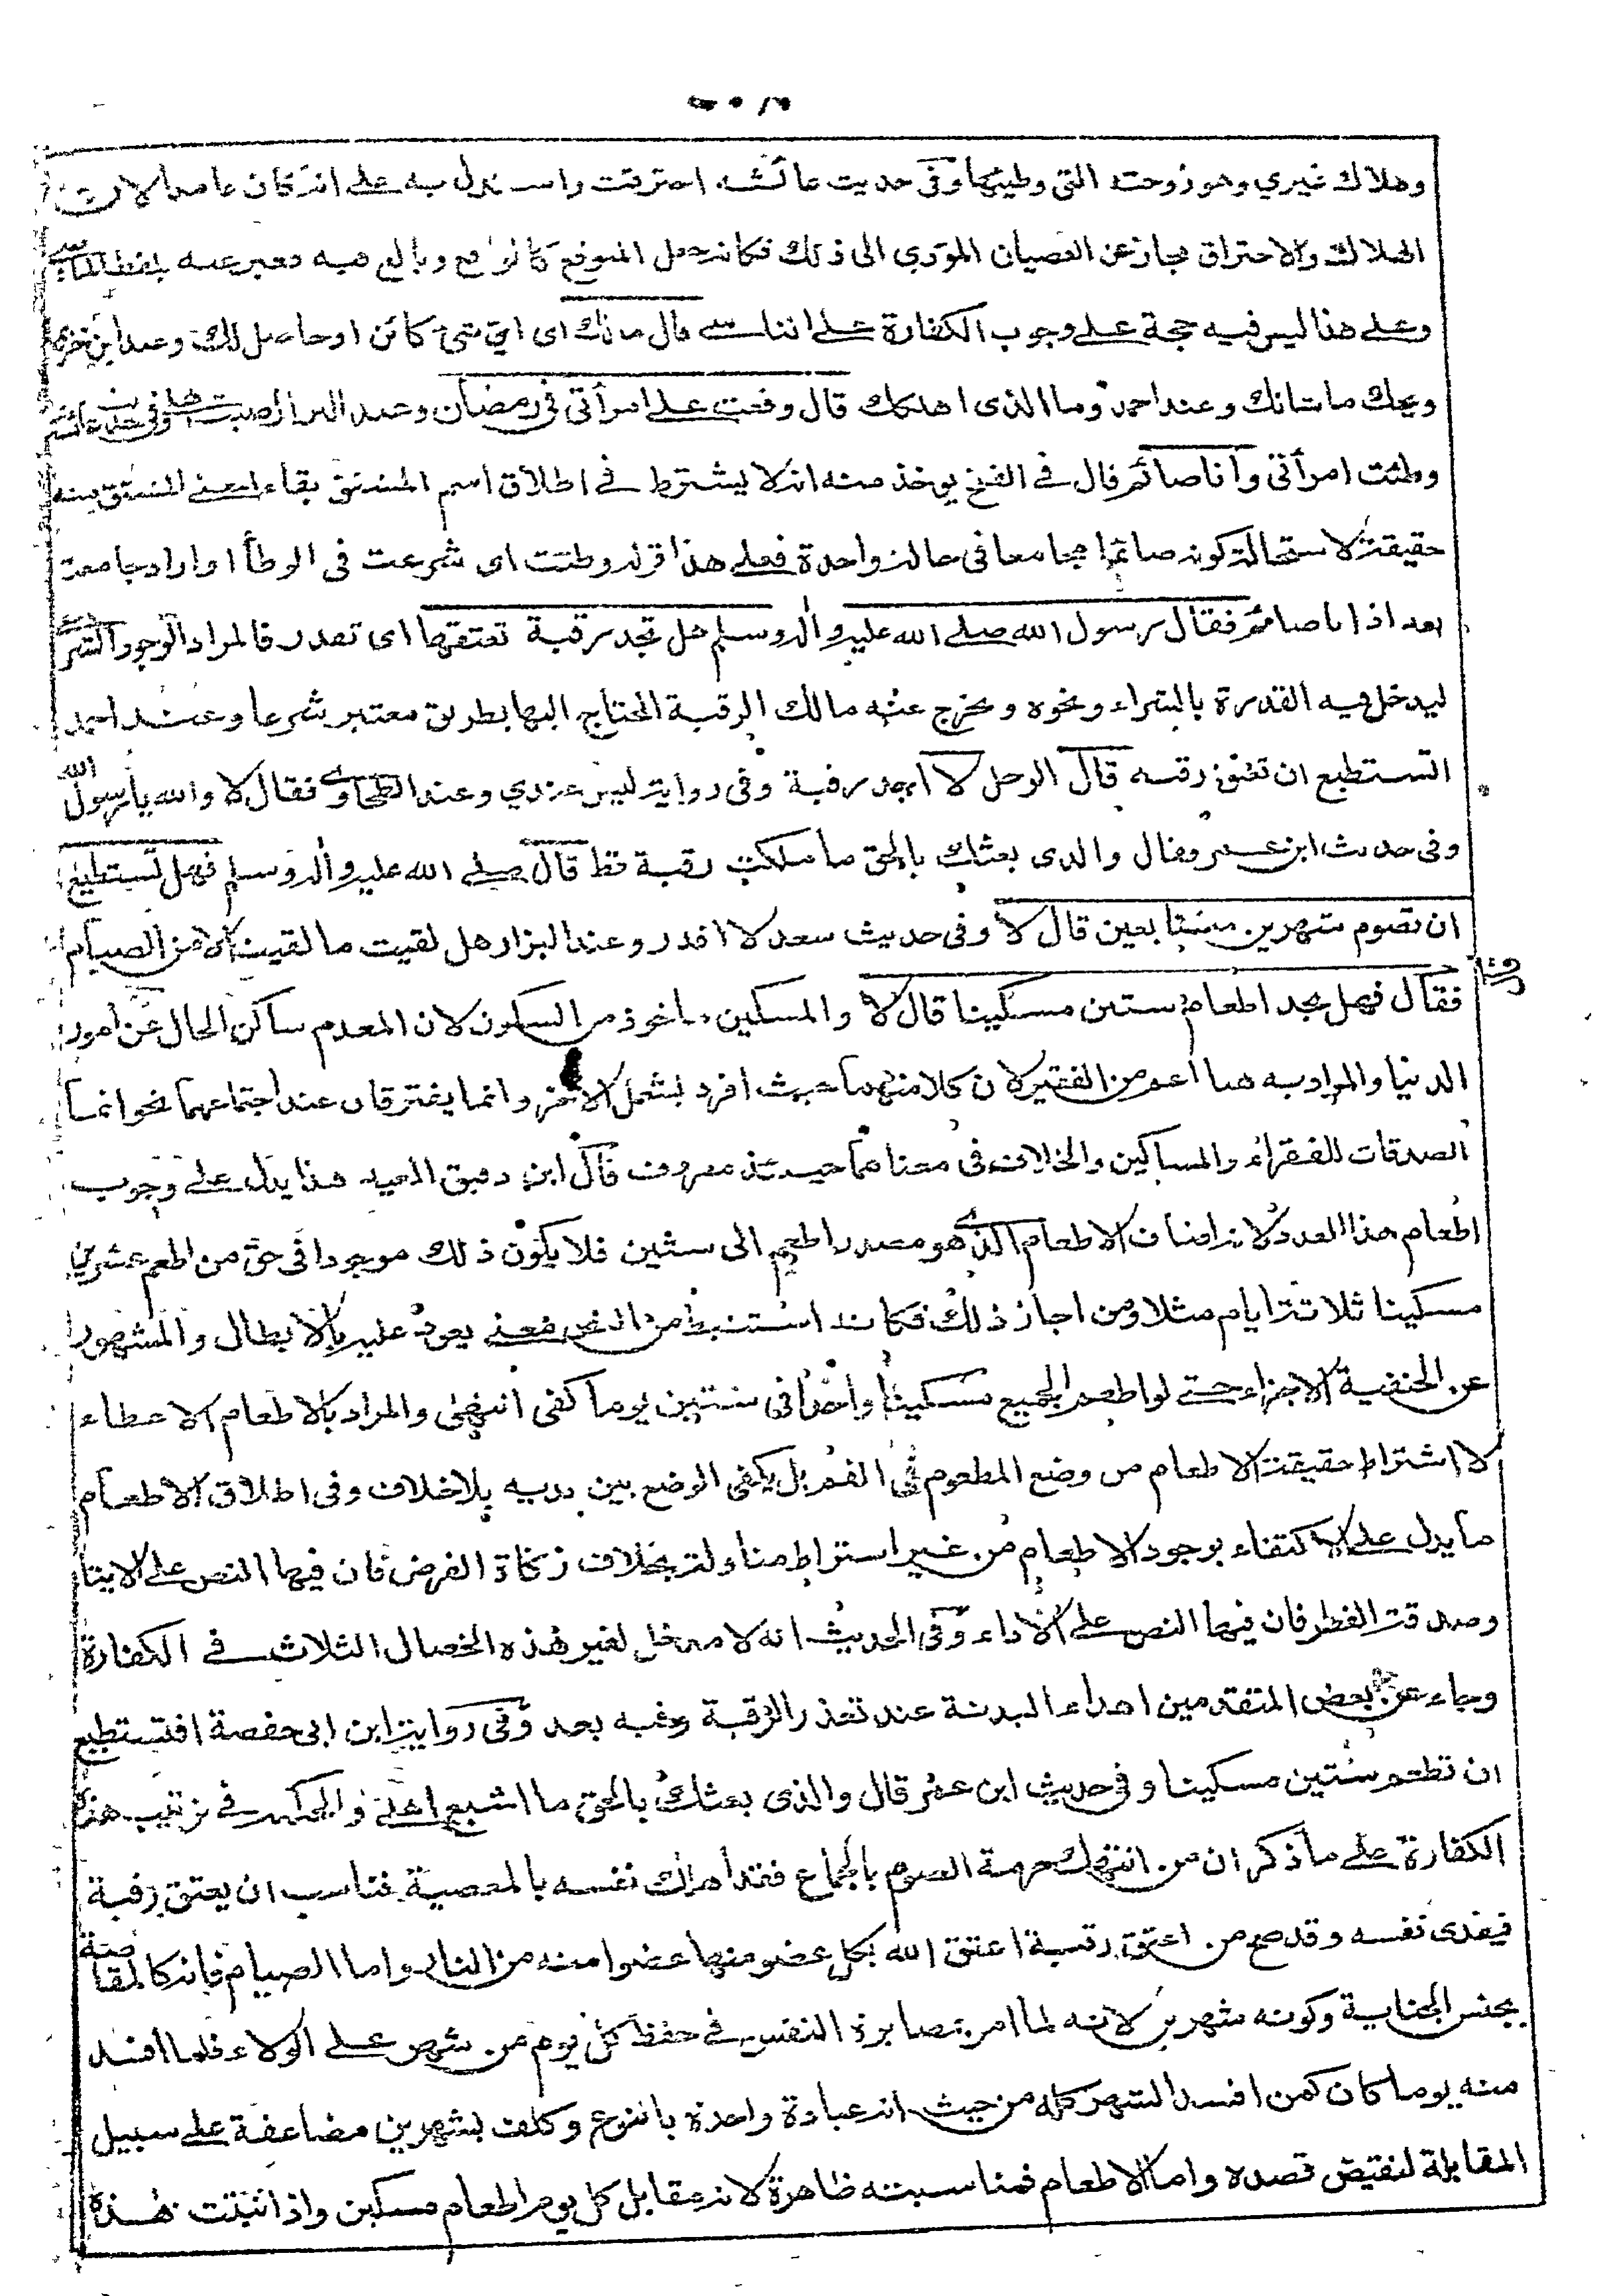 وهلاك غيري وهو زوجته التي وطيها وفي حديث عائشه احترقت واستدل به على انه كان عامدا لان
الهلاك والاحتراق مجاز عن العصيان المؤدي الى ذلك فكانه جعل المتوقع كالواقع وبالغ فيه فعبر عنه بلفظ الماضي
وعلى هذا ليس فيه حجة على وجوب الكفارة على الناسي قال مالك اى اي شئ كائن او حاصل لك وعند ابن خزيمة
ويحك ما شانك وعند احمد وما الذى اهلكك قال وقعت على امرأتى فى رمضان وعند البزار اصبت اهلى وفى حديث عائشة
وطئت امرأتى وأنا صائم قال فى الفتح يوخذ منه انه لا يشترط فى اطلاق اسم المشتق بقاء المعنى المشتق منه
حقيقة لاستحالة كونه صائما مجامعا فى حالة واحدة فعلى هذا قوله وطئت اى شرعت فى الوطأ او اراد جامعت
بعد اذ انا صائم فقال رسول الله صلى الله عليه واله وسلم هل تجد رقبة تعتقها اى تقدر فالمراد الوجود الشرعى
ليدخل فيه القدرة بالشراء ونحوه ويخرج عنه مالك الرقبة المحتاج اليها بطريق معتبر شرعا وعند احمد
اتستطيع ان تعتق رقبه قال الرجل لا أجد رقبة وفى رواية ليس عندي وعند الطحاوى فقال لا والله يا رسول الله
وفى حديث ابن عمر وقال والذى بعثك بالحق ما ملكت رقبة قط قال صلى الله عليه واله وسلم فهل تستطيع
ان تصوم شهرين متتابعين قال لا وفى حديث سعد لا اقدر وعند البزار هل لقيت ما لقيت الا من الصيام
فقال فهل تجد اطعام ستين مسكينا قال لا والمسكين ماخوذ من السكون لان المعدم ساكن الحال عن امور
الدنيا والمراد به هنا اعم من الفقير لان كلا منهما حيث افرد يشمل الاخر وانما يفترقان عند اجتماعهما نحو انما
الصدقات للفقراء والمساكين والخلاف فى معناهما حينئذ معروف قال ابن دقيق العيد هذا يدل على وجوب
اطعام هذا العدد لانه اضاف الاطعام الذى هو مصدر اطعم الى ستين فلا يكون ذلك موجودا فى حق من اطعم عشرين
مسكينا ثلاثة ايام مثلا ومن اجاز ذلك فكانه استنبط من النص معنى يعود عليه بالابطال والمشهور
عن الحنفية الاجزاء حتى لو اطعم الجميع مسكينا واحدا فى ستين يوما كفى انتهى والمراد بالاطعام الاعطاء
لا اشتراط حقيقة الاطعام من وضع المطعوم فى الفم بل يكفى الوضع بين يديه بلا خلاف وفى اطلاق الاطعام
ما يدل على الاكتفاء بوجود الاطعام من غير اشتراط مناولة بخلاف زكاة الفرض فان فيها النص على الايتاء
وصدقة الفطر فان فيها النص على الاداء وفى الحديث انه لا مدخل لغير هذه الخصال الثلاث فى الكفارة
وجاء عن بعض المتقدمين اهداء البدنة عند تعذر الرقبة وفيه بعد وفى رواية ابن ابى حفصة افتستطيع
ان تطعم ستين مسكينا وفى حديث ابن عمر قال والذى بعثك بالحق ما اشبع اهلى والحكمة فى ترتيب هذه
الكفارة على ما ذكر ان من انتهك حرمة الصوم بالجماع فقد اهلك نفسه بالمعصية فناسب ان يعتق رقبة
فيفدى نفسه وقد صح من اعتق رقبة اعتق الله بكل عضو منها عضوا منه من النار واما الصيام فانه كالمقاصة
بجنس الجناية وكونه شهرين لانه لما امر بمصابرة النفس فى حفظ كل يوم من شهر على الولاء فلما افسد
منه يوما كان كمن افسد الشهر كله من حيث انه عبادة واحدة بالنوع وكلف بشهرين مضاعفة على سبيل
المقابلة لنقيض قصده واما الاطعام فمناسبته ظاهرة لانه مقابل كل يوم اطعام مسكين واذا ثبتت هذه